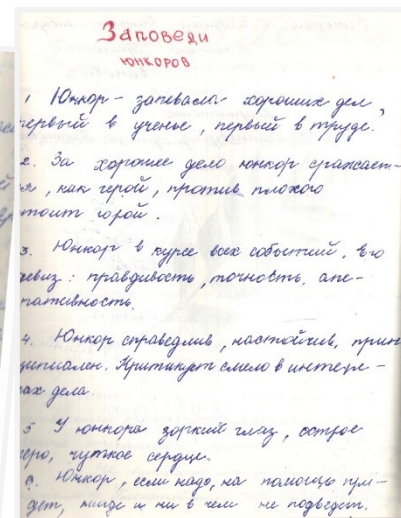 Заповеди
юнкоров
1 Юнкор - запевала хороших дел,
первый в ученье, первый в труде.
2. За хорошее дело юнкор сражает-
я, как герой, против плохого
тоит горой.
3. Юнкор в курсе всех событий, его
евиз: правдивость, точность, опе-
ративность.
4. Юнкор справедлив, настойчив, прин
ципиален. Критикует смело в интере-
сах дела.
5 У юнкора зоркий глаз, острое
перо, чуткое сердце.
6. Юнкор, если надо, на помощь при-
дет, нигде и ни в чем не подведет.